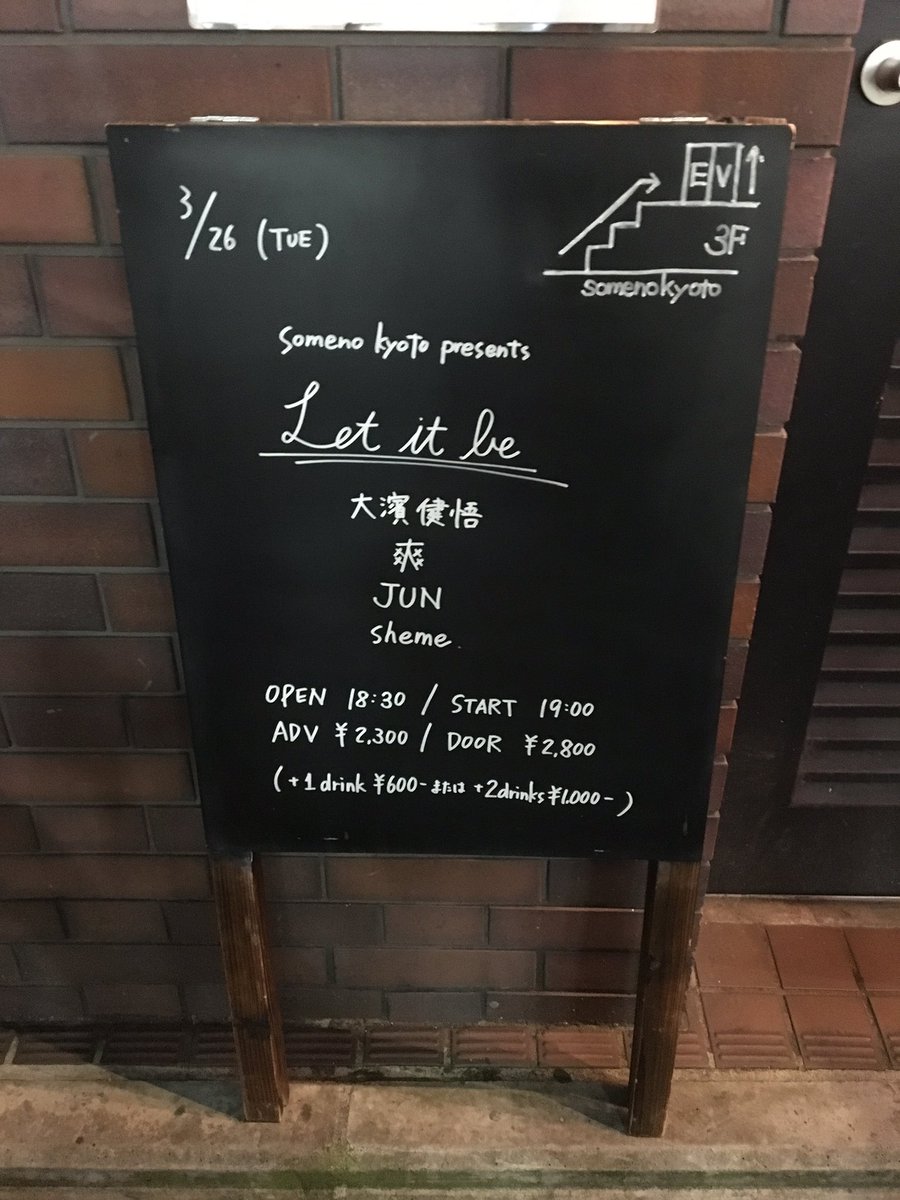 3/26 (TUE)
EV↑
3F
somenokyoto
someno kyoto presents
Let it be
大濱健悟
爽
JUN
sheme
OPEN 18:30 / START 19:00
ADV ¥2,300 / DOOR ¥2,800
(+1 drink ¥600- または +2drinks ¥1.000-)